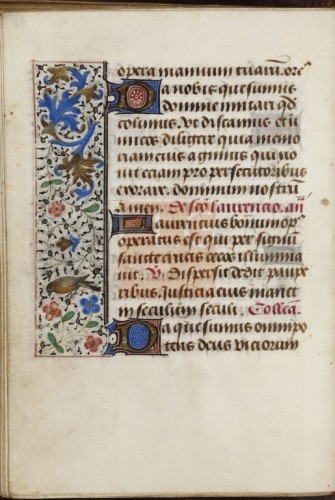 opera manuum tuarū. orō
Da nobis quesumus
domine imitari qd
colimus. Vt discamus et ini
micos diligere quia memo
riam eius agimus qui no
uit eciam pro persecutoribus
exorare. dominum nostrū
Amen. De scō laurencio. añ
Laurencius bonum opꝰ
operatus est qui per signū
sancte crucis cecos illumina
uit. V. Dispersit dedit paupe
ribus. Iusticia eius manet
in seculum seculi. Collecā
Da quesumus omnipo
tens deus viciorum